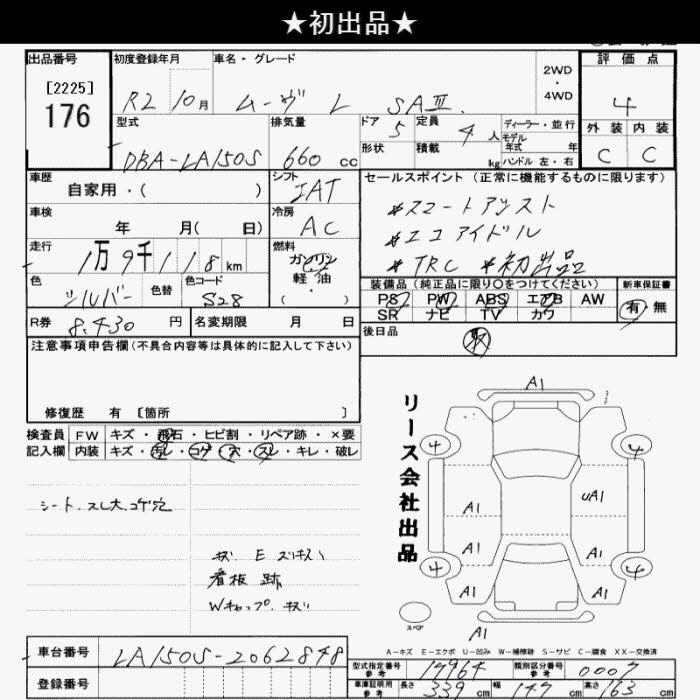 ★初出品★
出品番号
[2225]
176
初度登録年月
R2 10月
車名・グレード
ムーヴ L SAⅢ
2WD
・
4WD
評価点
4
外装 内装
C C
型式
DBA-LA150S
排気量
660 cc
ドア 5
定員 4 人
形状
積載 kg
ディーラー・並行
モデル年式 年
ハンドル 左・右
車歴
自家用・( )
シフト
IAT
車検
年 月( 日)
冷房
AC
走行
1万9千118km
燃料
ガソリン
軽油
( ・ )
色
シルバー
色替
色コード
S28
R券
8,430円
名変期限 月 日
セールスポイント (正常に機能するものに限ります)
*スマートアシスト
*エコアイドル
*TRC *初出品
装備品 (純正品に限り○をつけてください)
PS PW ABS エアB AW
SR ナビ TV カワ
新車保証書
有・無
後日品
取
注意事項申告欄(不具合内容等は具体的に記入して下さい)
修復歴 有 [箇所 ]
検査員記入欄
FW キズ・飛石・ヒビ割・リペア跡・×要
内装 キズ・汚レ・コゲ・穴・スレ・キレ・破レ
シート.スレ大.コゲ穴
キズ E ズリキズ
看板跡
Wキャップ.キズ
リース会社出品
A1
4 4
A1 UA1
A1 A1
4 4
A1 A1
A1
スペア
A-キズ E-エクボ U-凹み W-補修跡 S-サビ C-腐食 XX-交換済
車台番号
LA150S-2062848
登録番号
型式指定番号 参考 17964
類別区分番号 参考 0007
車庫証明用 参考 長さ 339cm 幅 147cm 高さ 163cm